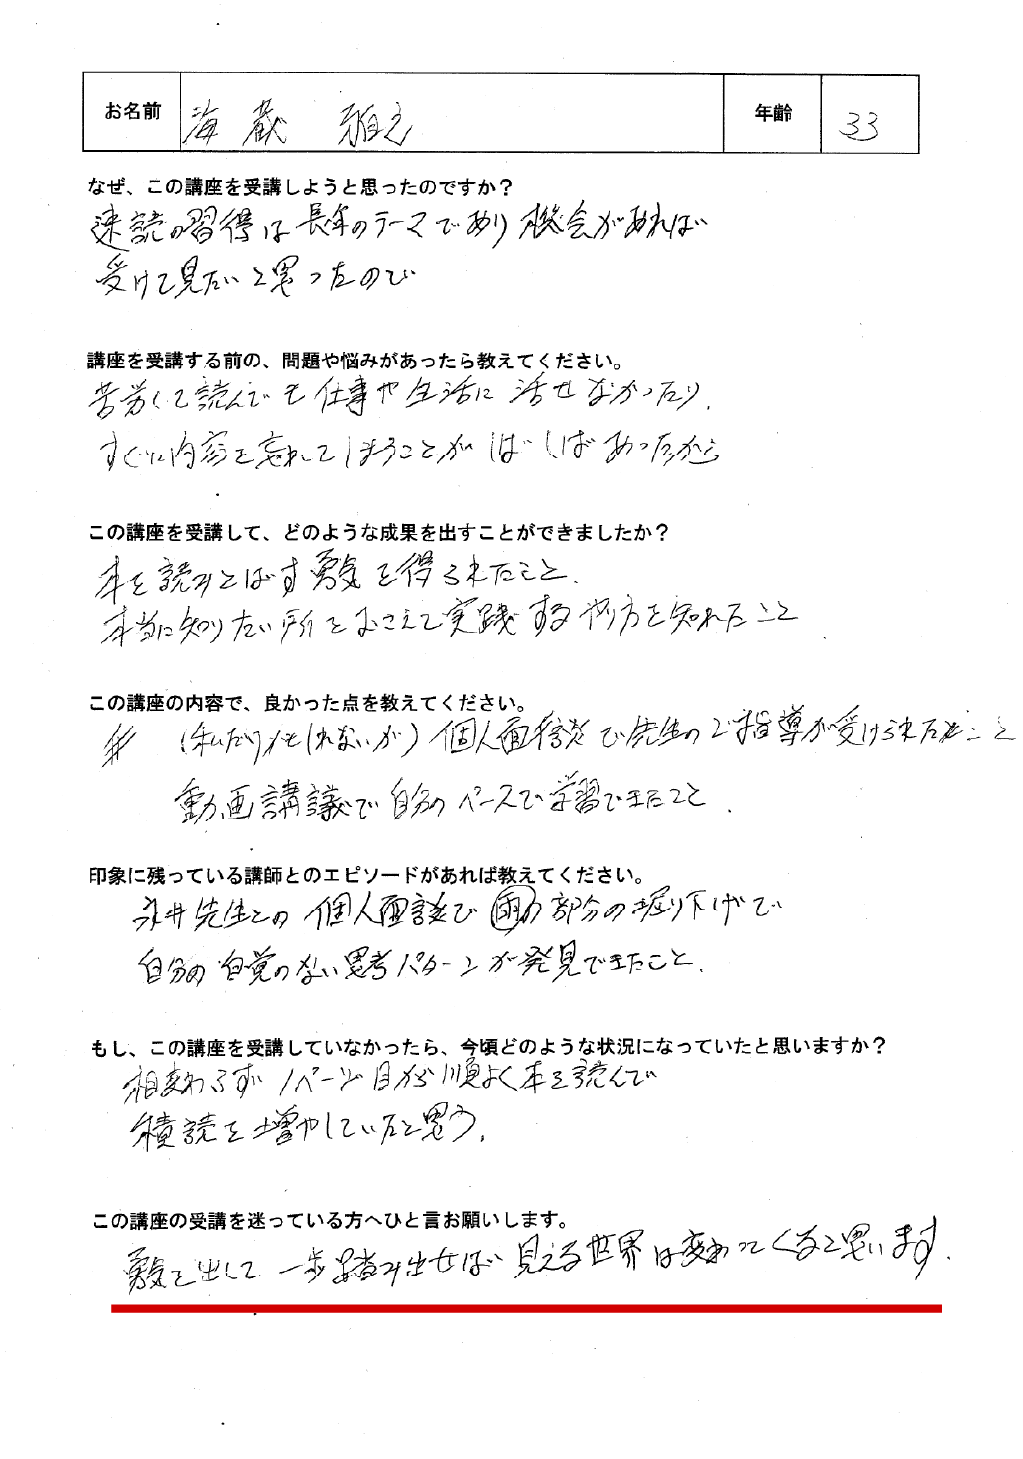 お名前 海蔵 雅之 年齢 33
なぜ、この講座を受講しようと思ったのですか？
速読の習得は長年のテーマであり機会があれば
受けて見たいと思ったので
講座を受講する前の、問題や悩みがあったら教えてください。
苦労して読んでも仕事や生活に活せなかったり、
すぐに内容を忘れてしまうことがしばしばあったから
この講座を受講して、どのような成果を出すことができましたか？
本を読みとばす勇気を得られたこと、
本当に知りたい所をおさえて実践するやり方を知れたこと
この講座の内容で、良かった点を教えてください。
（私だけかもしれないが）個人面談で先生のご指導が受けられたこと
動画講議で自分のペースで学習できたこと．
印象に残っている講師とのエピソードがあれば教えてください。
永井先生との個人面談で の部分の掘り下げで
自分の自覚のない思考パターンが発見できたこと．
もし、この講座を受講していなかったら、今頃どのような状況になっていたと思いますか？
相変わらず1ページ目から順よく本を読んで
積読を増やしていたと思う．
この講座の受講を迷っている方へひと言お願いします。
勇気を出して一歩踏み出せば見える世界は変わってくると思います．